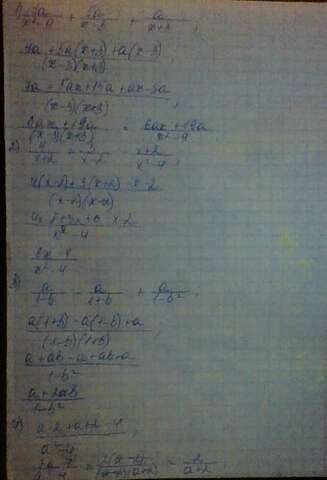 1) 7a/(x²-9) + 5a/(x-3) + a/(x+3)
7a+5a(x+3)+a(x-3)/(x-3)(x+3)
7a+5ax+15a+ax-3a/(x-3)(x+3)
6ax+19a/(x-3)(x+3) = 6ax+19a/x²-9
2) 4/(x+2) + 3/(x-2) - x+2/x²-4
4(x-2)+3(x+2)-x-2/(x-2)(x+2)
4x-8+3x+6-x-2/x²-4
6x-4/x²-4
3) a/1-b - a/1+b + a/1-b²
a(1+b)-a(1-b)+a/(1-b)(1+b)
a+ab-a+ab+a/1-b²
a+2ab/1-b²
a-2+a+2-4/a²-4
= 2(a-2)/(a-2)(a+2) = 2/a+2